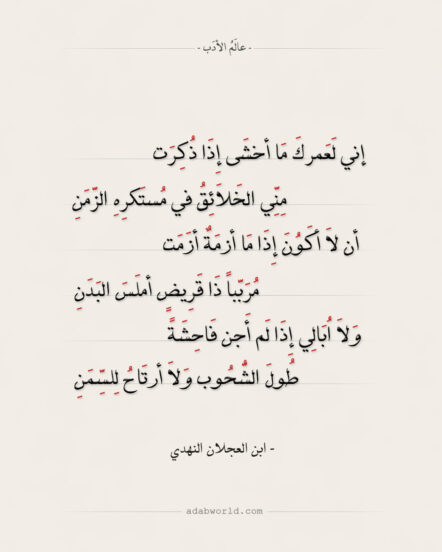 - عالَمُ الأدَب -
إني لَعَمركَ مَا أخشَى إِذَا ذُكِرَت
مِنِّي الخَلاَئِقُ في مُستَكرِهِ الزَّمَنِ
أن لاَ أكَوُنَ إِذَا مَا أزمَةٌ أزَمَت
مُرَبّباً ذَا قَرِيضٍ أملَسَ البَدَنِ
وَلاَ أبَالِي إِذَا لَم أَجنِ فَاحِشَةً
طُولَ الشُّحُوبِ وَلاَ أرتَاحُ لِلِسِّمَنِ
- ابن العجلان النهدي
adabworld.com